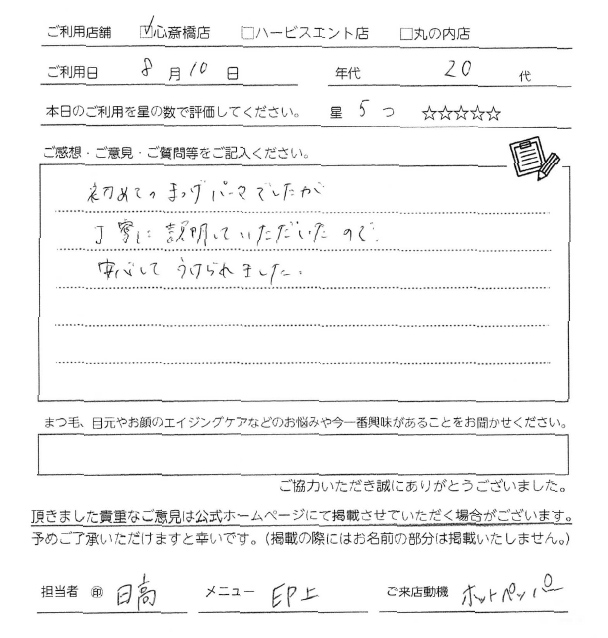 ご利用店舗 ☑心斎橋店 □ハービスエント店 □丸の内店
ご利用日 8月10日 年代 20代
本日のご利用を星の数で評価してください。 星 5つ ☆☆☆☆☆
ご感想・ご意見・ご質問等をご記入ください。
初めてのまつげパーマでしたが
丁寧に説明していただいたので、
安心してうけられました。
まつ毛、目元やお顔のエイジングケアなどのお悩みや今一番興味があることをお聞かせください。
ご協力いただき誠にありがとうございました。
頂きました貴重なご意見は公式ホームページにて掲載させていただく場合がございます。
予めご了承いただけますと幸いです。(掲載の際にはお名前の部分は掲載いたしません。)
担当者 ㊞ 日高 メニュー EP上 ご来店動機 ホットペッパー